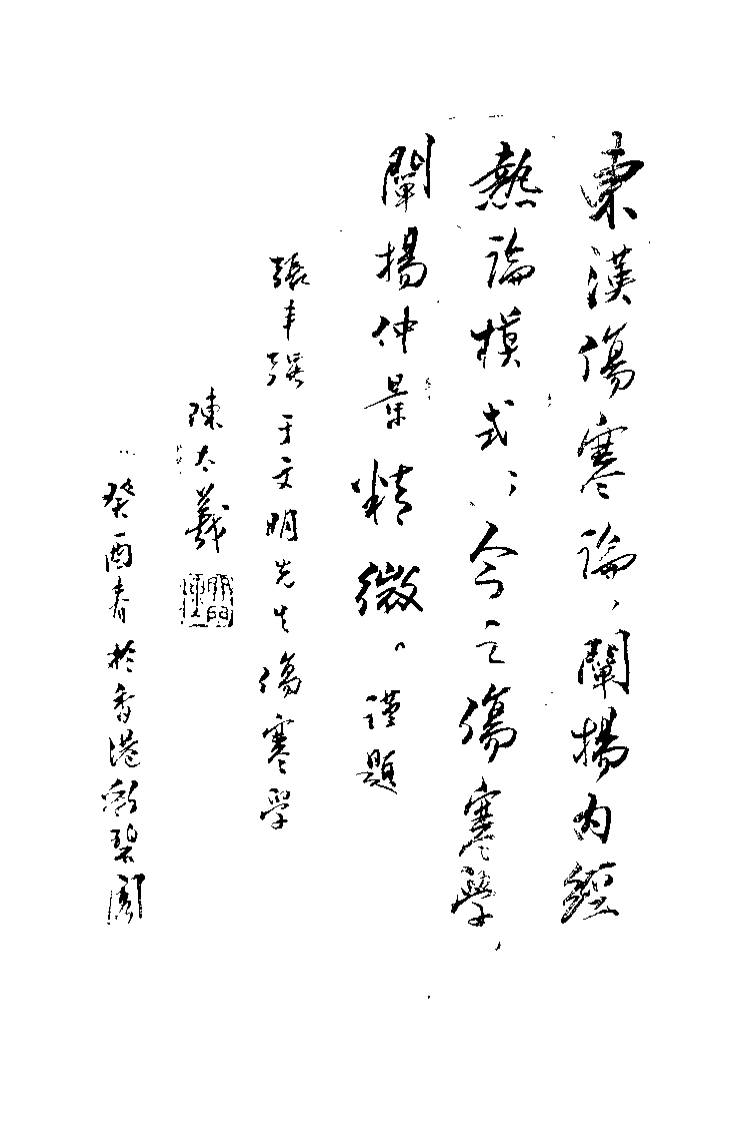 東漢傷寒論，闡揚內經
熱論模式；今之傷寒學，
闡揚仲景精微。謹題
張丰強于文明先生傷寒學
陳太羲
癸酉春於香港碧閣